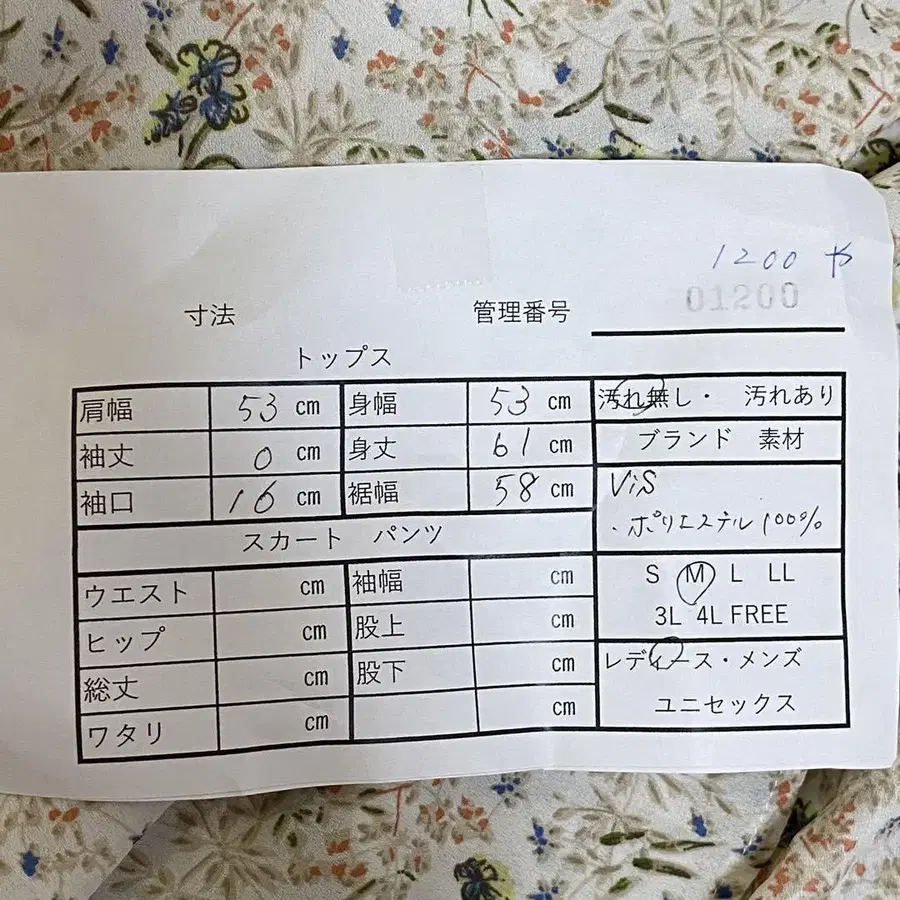 1200 や
01200
寸法 管理番号
トップス
肩幅 53 cm 身幅 53 cm 汚れ無し・ 汚れあり
袖丈 0 cm 身丈 61 cm ブランド 素材
袖口 16 cm 裾幅 58 cm ViS
・ポリエステル100%
スカート パンツ
ウエスト cm 袖幅 cm S M L LL
ヒップ cm 股上 cm 3L 4L FREE
総丈 cm 股下 cm レディース・メンズ
ワタリ cm cm ユニセックス